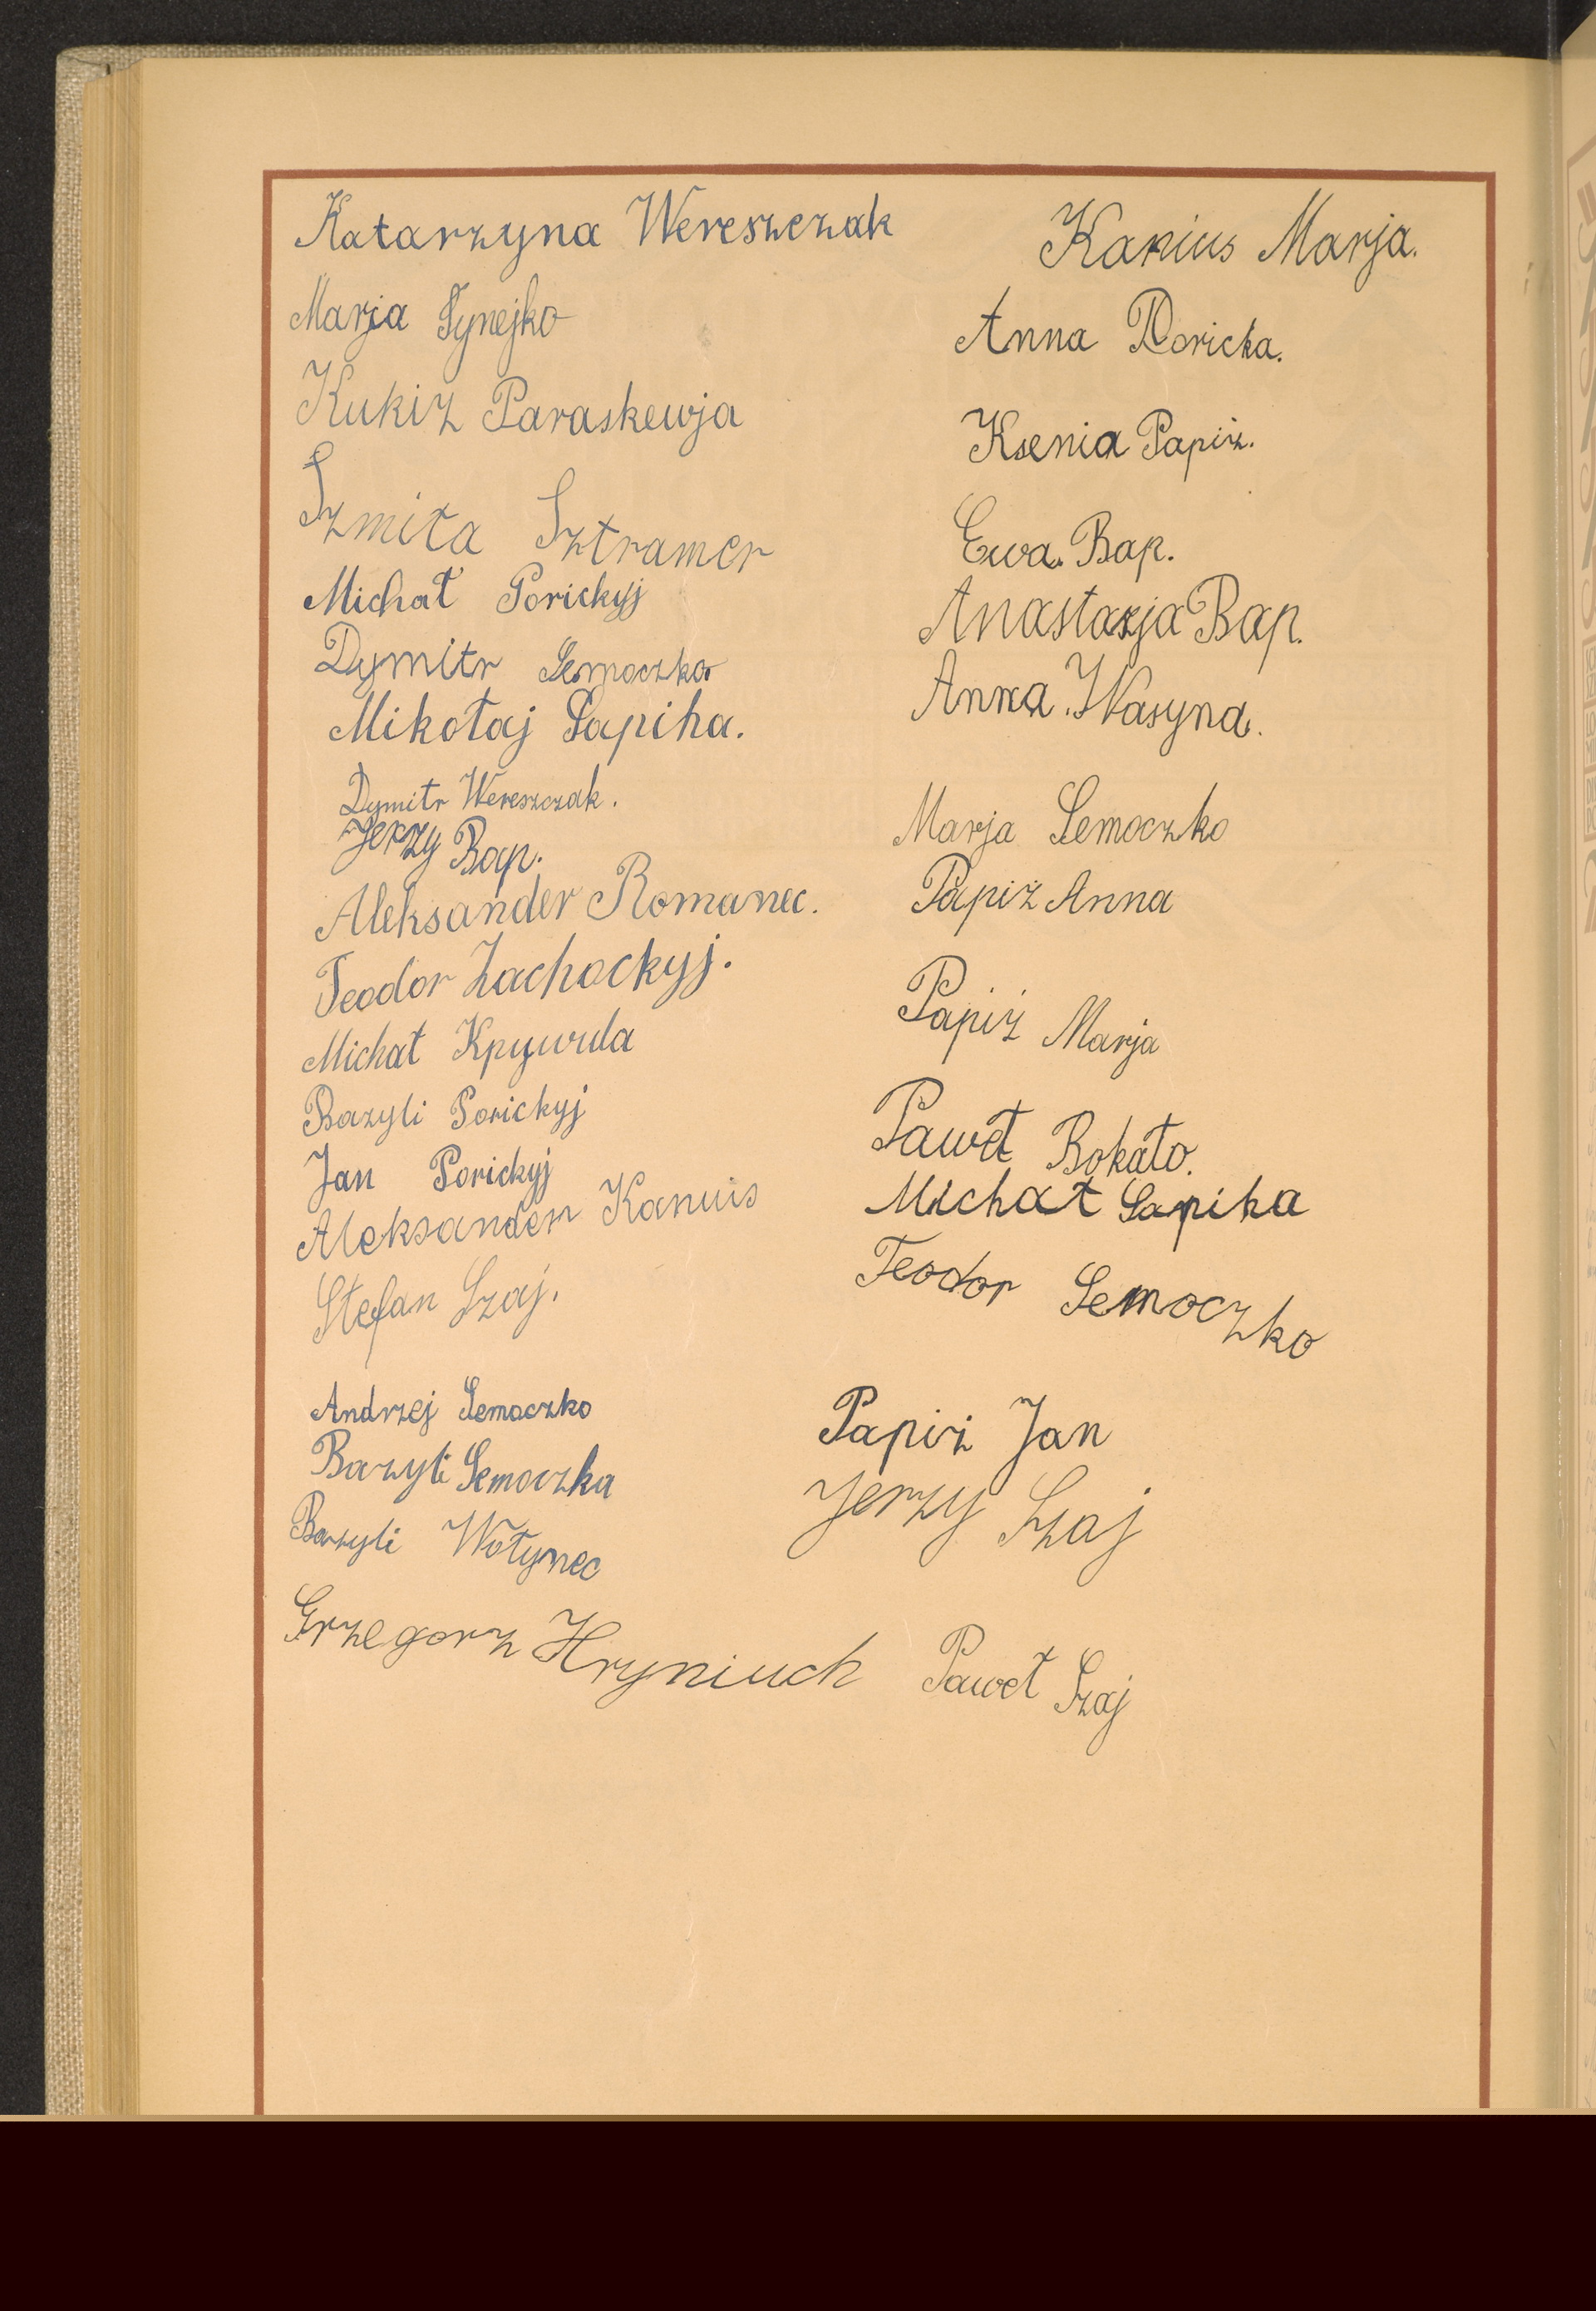 Katarzyna Wereszczak
Marja Tynejko
Kukiz Paraskewja
Szmita Sztramer
Michał Porickyj
Dymitr Semoczko
Mikołaj Sapiha.
Dymitr Wereszczak.
Jerzy Bap.
Aleksander Romanec.
Teodor Zachockyj.
Michał Kpywula
Bazyli Porickyj
Jan Porickyj
Aleksander Kanuis
Stefan Szaj.
Andrzej Semoczko
Bazyli Semoczka
Bazyli Wołynec
Grzegorz Hryniuch
Kanius Marja.
Anna Poricka.
Ksenia Papiż.
Ewa. Bap.
Anastazja Bap.
Anna. Wasyna.
Marja Semoczko
Papiż Anna
Papiż Marja
Paweł Bokało.
Michał Sapiha
Teodor Semoczko
Papiż Jan
Jerzy Szaj
Paweł Szaj